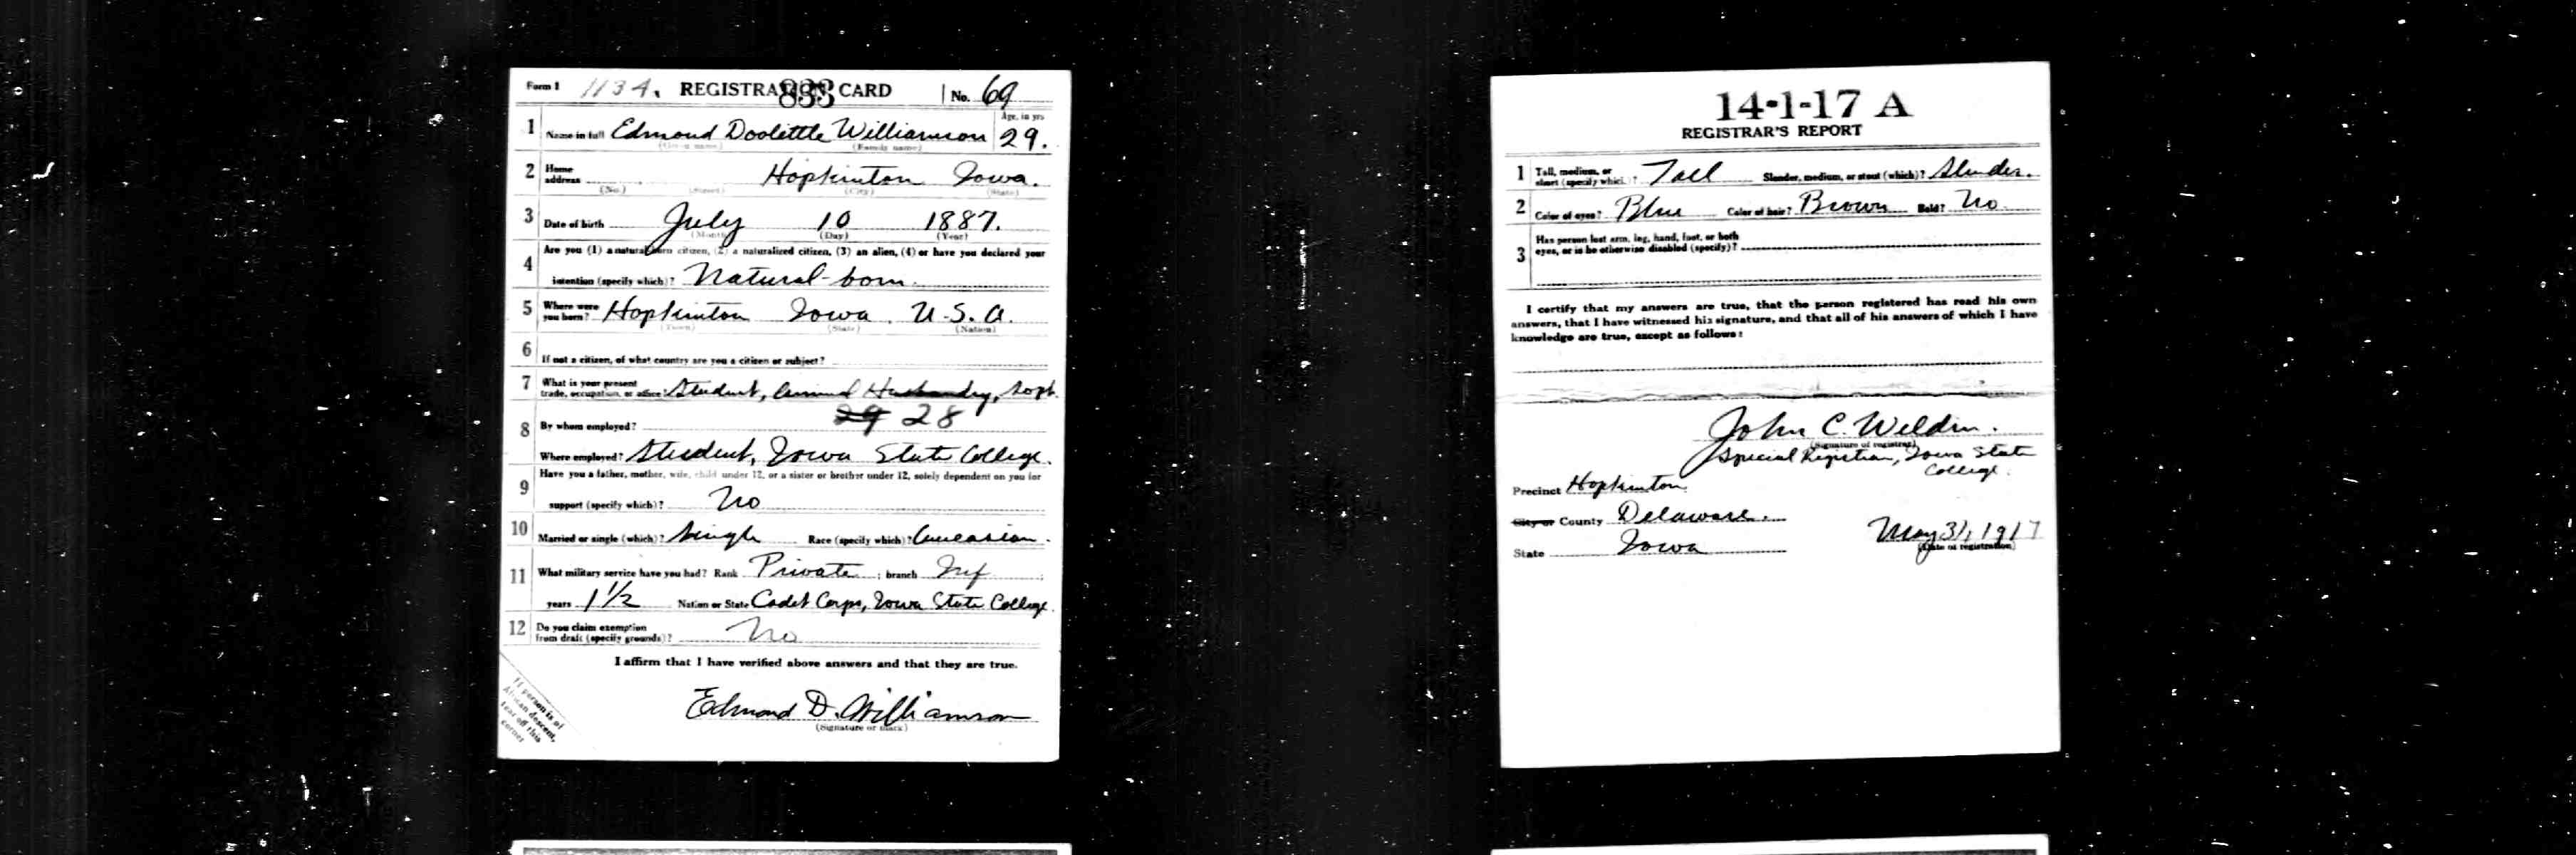 Form 1 1134. REGISTRATION CARD No. 69
833
1 Name in full Edmond Doolittle Williamson Age, in yrs 29.
(Given name) (Family name)
2 Home address Hopkinton Iowa.
(No.) (Street) (City) (State)
3 Date of birth July 10 1887.
(Month) (Day) (Year)
4 Are you (1) a natural born citizen, (2) a naturalized citizen, (3) an alien, (4) or have you declared your
intention (specify which)? Natural-born.
5 Where were you born? Hopkinton Iowa. U.S.A.
(Town) (State) (Nation)
6 If not a citizen, of what country are you a citizen or subject?
7 What is your present trade, occupation, or office Student, Animal Husbandry, Soph.
29 28
8 By whom employed?
Where employed? Student, Iowa State College.
9 Have you a father, mother, wife, child under 12, or a sister or brother under 12, solely dependent on you for
support (specify which)? No
10 Married or single (which)? Single Race (specify which)? Caucasian.
11 What military service have you had? Rank Private ; branch Inf ;
years 1 1/2 Nation or State Cadet Corps, Iowa State College.
12 Do you claim exemption from draft (specify grounds)? No
I affirm that I have verified above answers and that they are true.
Edmond D. Williamson
(Signature or mark)
If person is of
African descent,
tear off this
corner
14-1-17 A
REGISTRAR'S REPORT
1 Tall, medium, or short (specify which)? Tall Slender, medium, or stout (which)? Slender.
2 Color of eyes? Blue Color of hair? Brown Bald? No
3 Has person lost arm, leg, hand, foot, or both
eyes, or is he otherwise disabled (specify)?
I certify that my answers are true, that the person registered has read his own
answers, that I have witnessed his signature, and that all of his answers of which I have
knowledge are true, except as follows:
John C. Weldin.
(Signature of registrar)
Special Registrar, Iowa State
College.
Precinct Hopkinton
City or County Delaware.
State Iowa
May 31, 1917
(Date of registration)